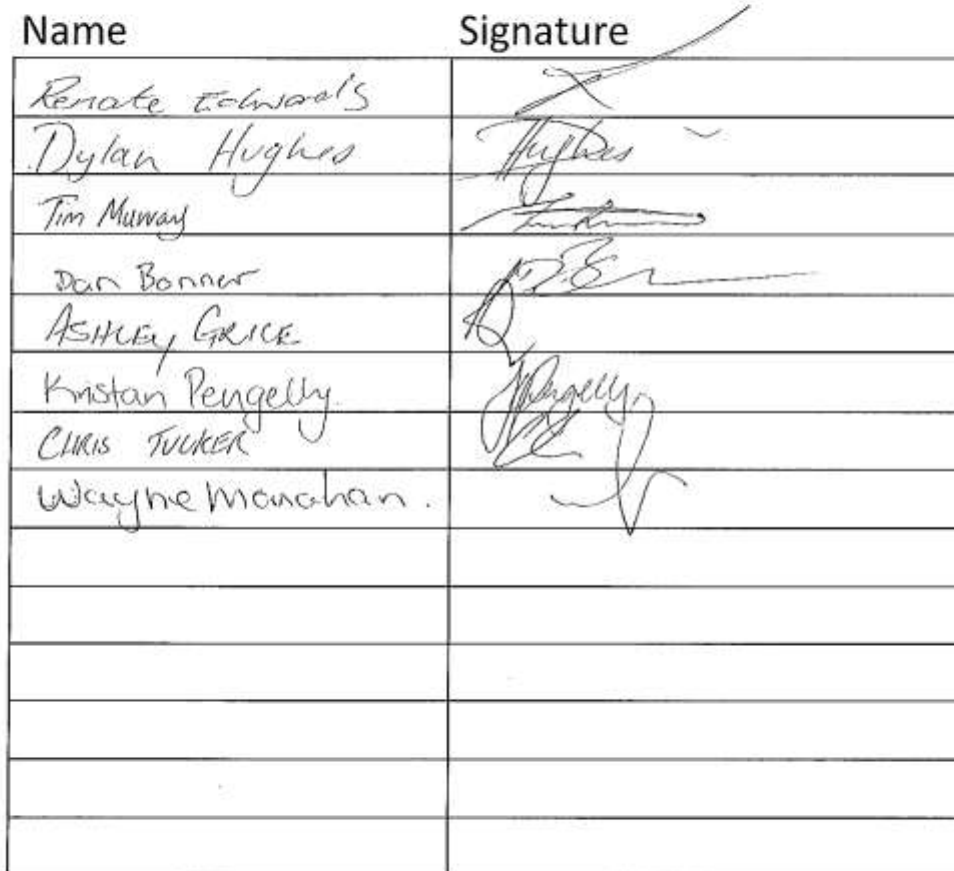 Name Signature
Renate Edwards
Dylan Hughes Hughes
Tim Murray
Dan Bonner
ASHLEY GRICE
Kristan Pengelly KPengelly
CHRIS TUCKER
Wayne Monahan.